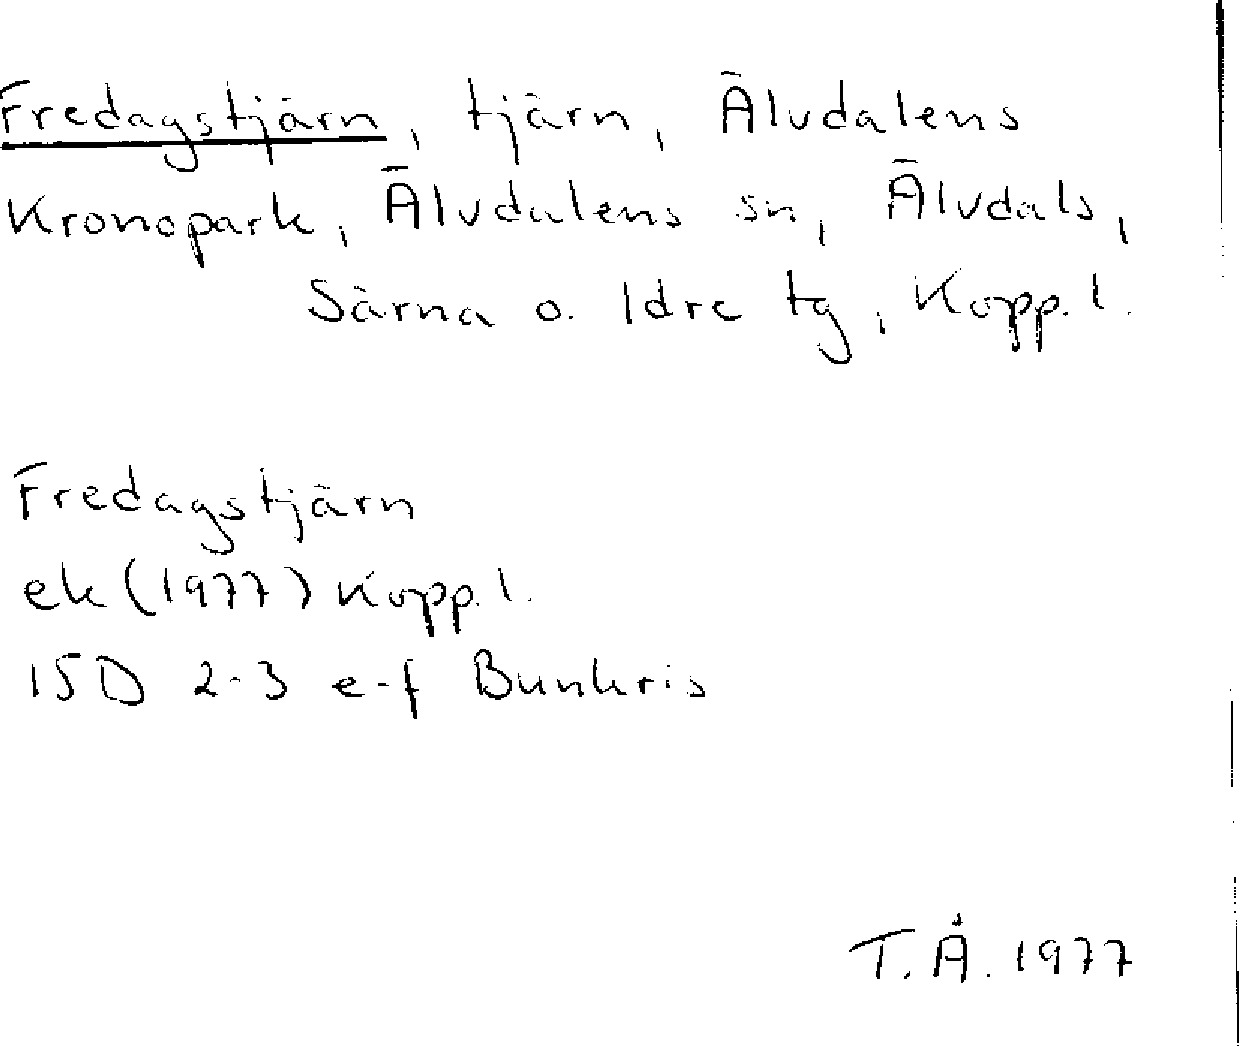 Fredagstjärn, tjärn, Älvdalens
Kronopark, Älvdalens sn, Älvdals,
Särna o. Idre tg, Kopp. l.
Fredagstjärn
ek (1977) Kopp. l.
15D 2-3 e-f Bunkris
T.Å. 1977